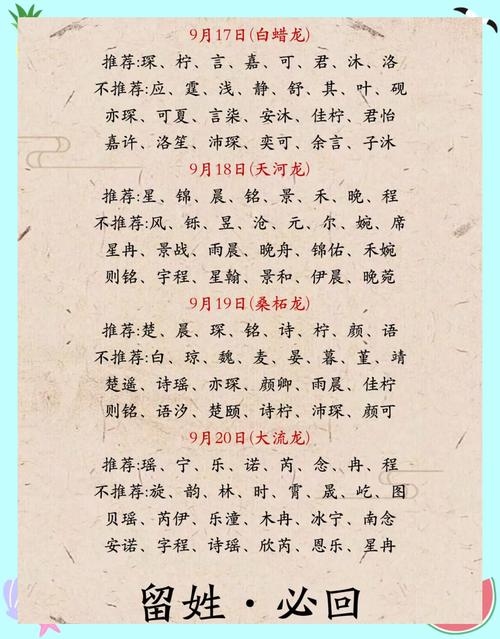 9月17日(白蜡龙)
推荐:琛、柠、言、嘉、可、君、沐、洛
不推荐:应、霆、浅、静、舒、其、叶、砚
亦琛、可夏、言柒、安沐、佳柠、君怡
嘉许、洛笙、沛琛、奕可、余言、子沐
9月18日(天河龙)
推荐:星、锦、晨、铭、景、禾、晚、程
不推荐:风、铄、昱、沧、元、尔、婉、席
星冉、景战、雨晨、晚舟、锦佑、禾婉
则铭、宇程、星翰、景和、伊晨、晚菀
9月19日(桑柘龙)
推荐:楚、晨、琛、铭、诗、柠、颜、语
不推荐:白、琼、魏、麦、晏、暮、堇、靖
楚遥、诗瑶、亦琛、颜卿、雨晨、佳柠
则铭、语汐、楚颐、诗柠、沛琛、颜可
9月20日(大流龙)
推荐:瑶、宁、乐、诺、芮、念、冉、程
不推荐:旋、韵、林、时、霄、晟、屹、图
贝瑶、芮伊、乐潼、木冉、冰宁、南念
安诺、字程、诗瑶、欣芮、恩乐、星冉
留姓·必回